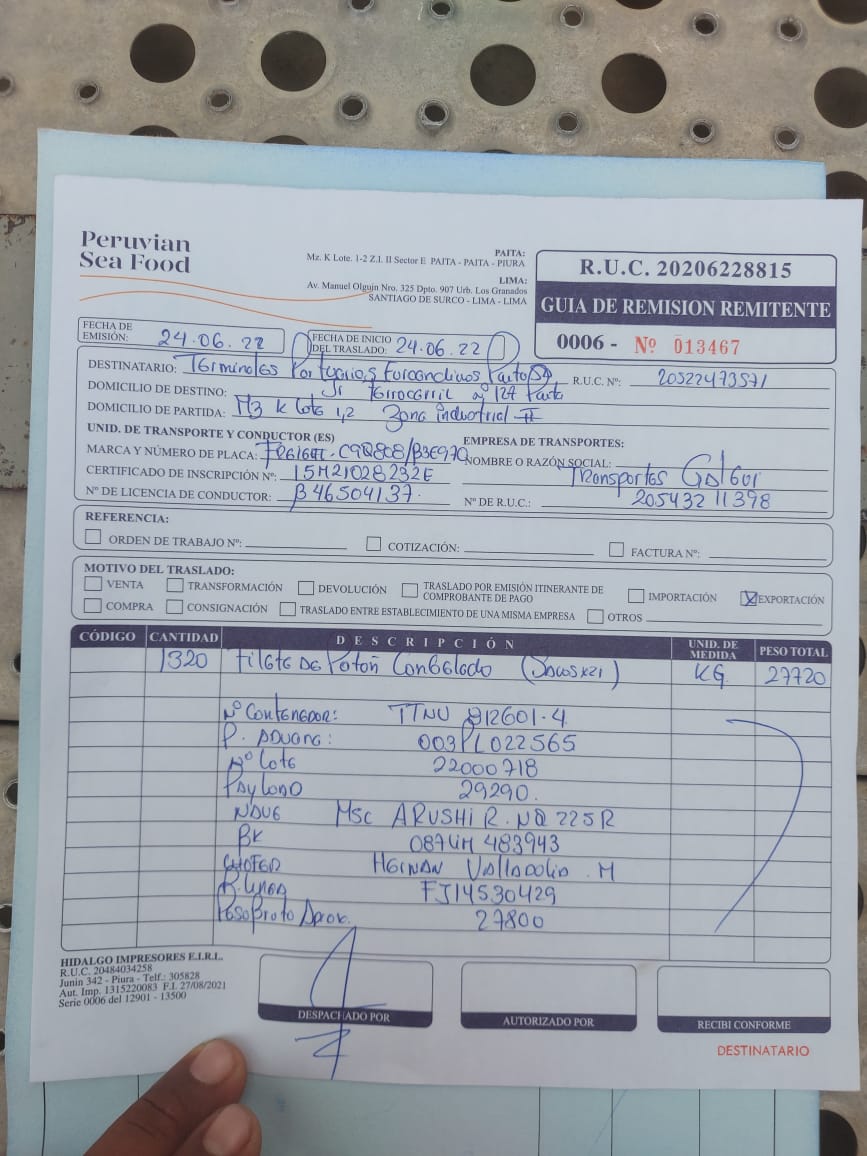 Peruvian
Sea Food
PAITA:
Mz. K Lote. 1-2 Z.I. II Sector E PAITA - PAITA - PIURA
LIMA:
Av. Manuel Olguin Nro. 325 Dpto. 907 Urb. Los Granados
SANTIAGO DE SURCO - LIMA - LIMA
R.U.C. 20206228815
GUIA DE REMISION REMITENTE
0006 - Nº 013467
FECHA DE EMISIÓN: 24.06.22
FECHA DE INICIO DEL TRASLADO: 24.06.22
DESTINATARIO: Terminales Portuarios Euroandinos Paita SA R.U.C. Nº: 20522473571
DOMICILIO DE DESTINO: Jr Ferrocarril Nº 127 Paita
DOMICILIO DE PARTIDA: Mz K Lote 1,2 Zona industrial II
UNID. DE TRANSPORTE Y CONDUCTOR (ES)
EMPRESA DE TRANSPORTES:
MARCA Y NÚMERO DE PLACA: C9Q808/B3E970
NOMBRE O RAZÓN SOCIAL: Transportes
CERTIFICADO DE INSCRIPCIÓN Nº: 15M21028232E
Nº DE LICENCIA DE CONDUCTOR: B46504137.
Nº DE R.U.C.: 20543211398
REFERENCIA:
ORDEN DE TRABAJO Nº: COTIZACIÓN: FACTURA Nº:
MOTIVO DEL TRASLADO:
VENTA TRANSFORMACIÓN DEVOLUCIÓN TRASLADO POR EMISIÓN ITINERANTE DE COMPROBANTE DE PAGO IMPORTACIÓN EXPORTACIÓN
COMPRA CONSIGNACIÓN TRASLADO ENTRE ESTABLECIMIENTO DE UNA MISMA EMPRESA OTROS
CÓDIGO CANTIDAD DESCRIPCIÓN UNID. DE MEDIDA PESO TOTAL
1320 Filete De Poton Congelado (Sacosx21) KG 27720
Nº Contenedor: TTNU 812601-4
P. Aduana: 003PL022565
Nº Lote 22000718
Payload 29290.
Nave Msc ARUSHI R. NQ 225R
BK 087LIM483943
CHOFER HERNAN Valladolid . M
P. Linea FJ14530429
Peso Bruto Aprox. 27800
HIDALGO IMPRESORES E.I.R.L.
R.U.C. 20484034258
Junin 342 - Piura - Telf.: 305828
Aut. Imp. 1315220083 F.I. 27/08/2021
Serie 0006 del 12901 - 13500
DESPACHADO POR
AUTORIZADO POR
RECIBI CONFORME
DESTINATARIO